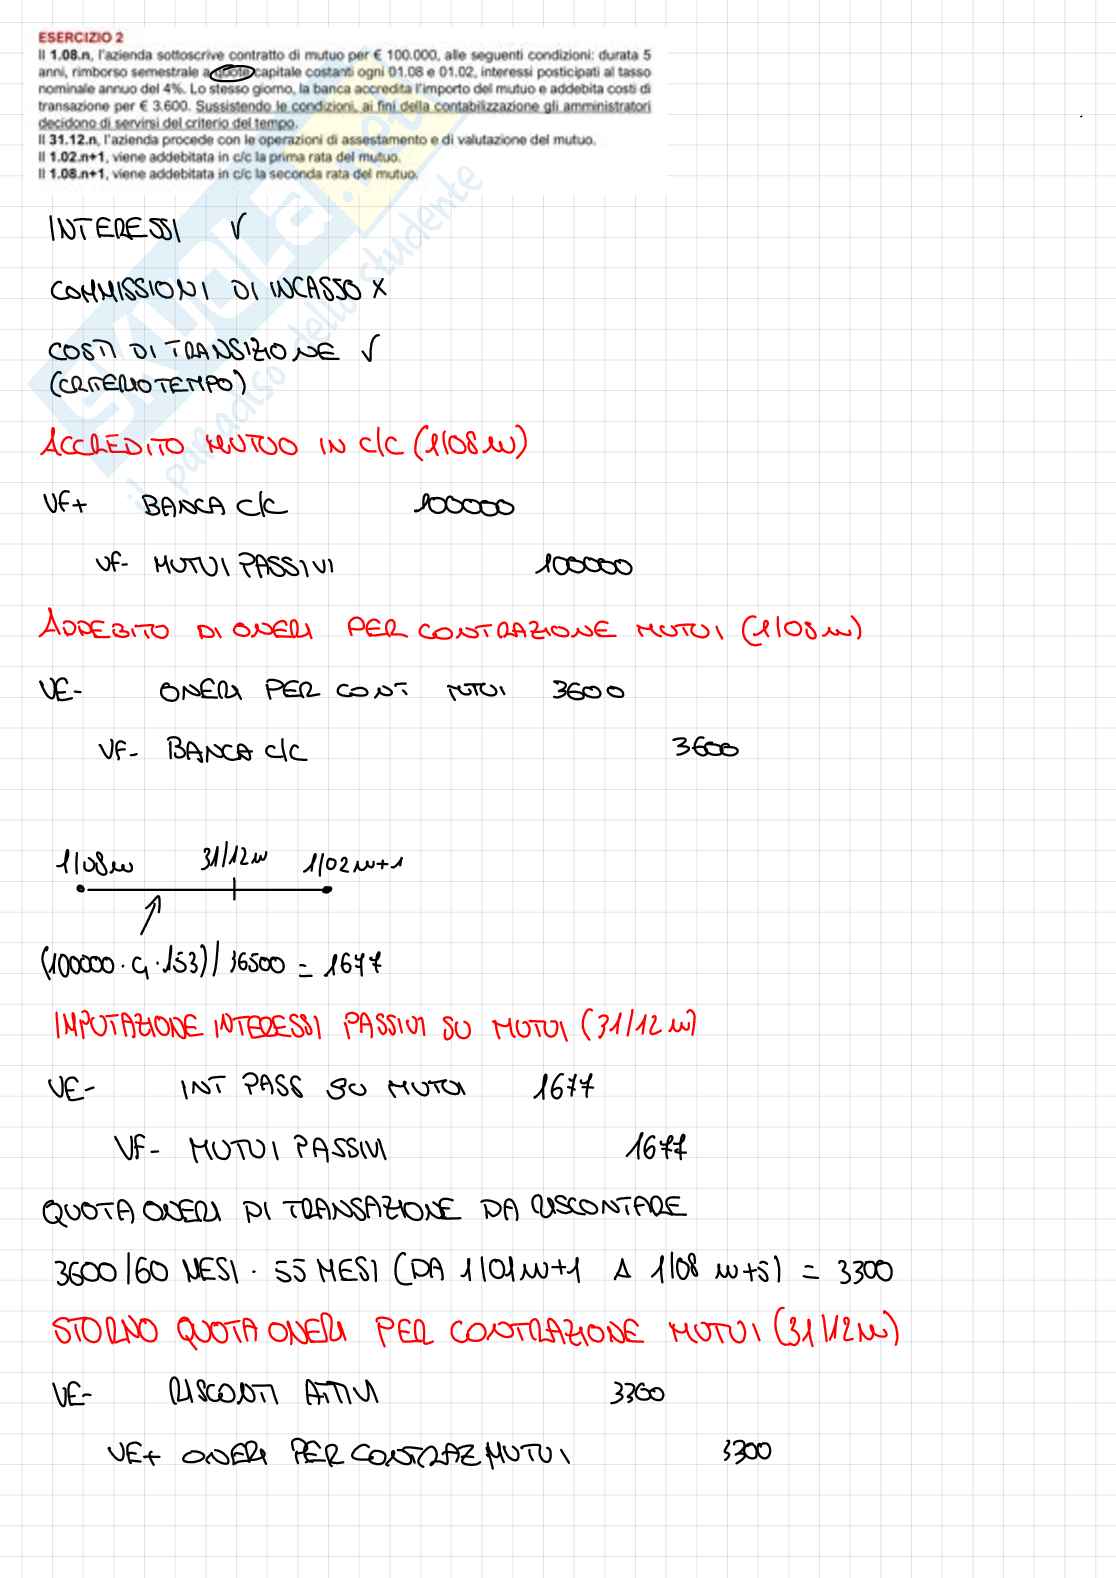 ESERCIZIO 2
Il 1.08.n, l'azienda sottoscrive contratto di mutuo per € 100.000, alle seguenti condizioni: durata 5
anni, rimborso semestrale a quote capitale costanti ogni 01.08 e 01.02, interessi posticipati al tasso
nominale annuo del 4%. Lo stesso giorno, la banca accredita l'importo del mutuo e addebita costi di
transazione per € 3.600. Sussistendo le condizioni, ai fini della contabilizzazione gli amministratori
decidono di servirsi del criterio del tempo.
Il 31.12.n, l'azienda procede con le operazioni di assestamento e di valutazione del mutuo.
Il 1.02.n+1, viene addebitata in c/c la prima rata del mutuo.
Il 1.08.n+1, viene addebitata in c/c la seconda rata del mutuo.
SKUOLA.net
il paradiso dello studente
INTERESSI √
COMMISSIONI DI INCASSO X
COSTI DI TRANSIZIONE √
(CRITERIO TEMPO)
ACCREDITO MUTUO IN C/C (1/08 n)
VF+ BANCA C/C 100000
VF- MUTUI PASSIVI 100000
ADDEBITO DI ONERI PER CONTRAZIONE MUTUI (1/08 n)
VE- ONERI PER CONT MUTUI 3600
VF- BANCA C/C 3600
1/08 n 31/12 n 1/02 n+1
(100000 · 4 · 153) / 36500 = 1677
IMPUTAZIONE INTERESSI PASSIVI SU MUTUI (31/12 n)
VE- INT PASS SU MUTUI 1677
VF- MUTUI PASSIVI 1677
QUOTA ONERI DI TRANSAZIONE DA RISCONTARE
3600/60 MESI · 55 MESI (DA 1/01 n+1 A 1/08 n+5) = 3300
STORNO QUOTA ONERI PER CONTRAZIONE MUTUI (31/12 n)
VE- RISCONTI ATTIVI 3300
VE+ ONERI PER CONTRAZ MUTUI 3300